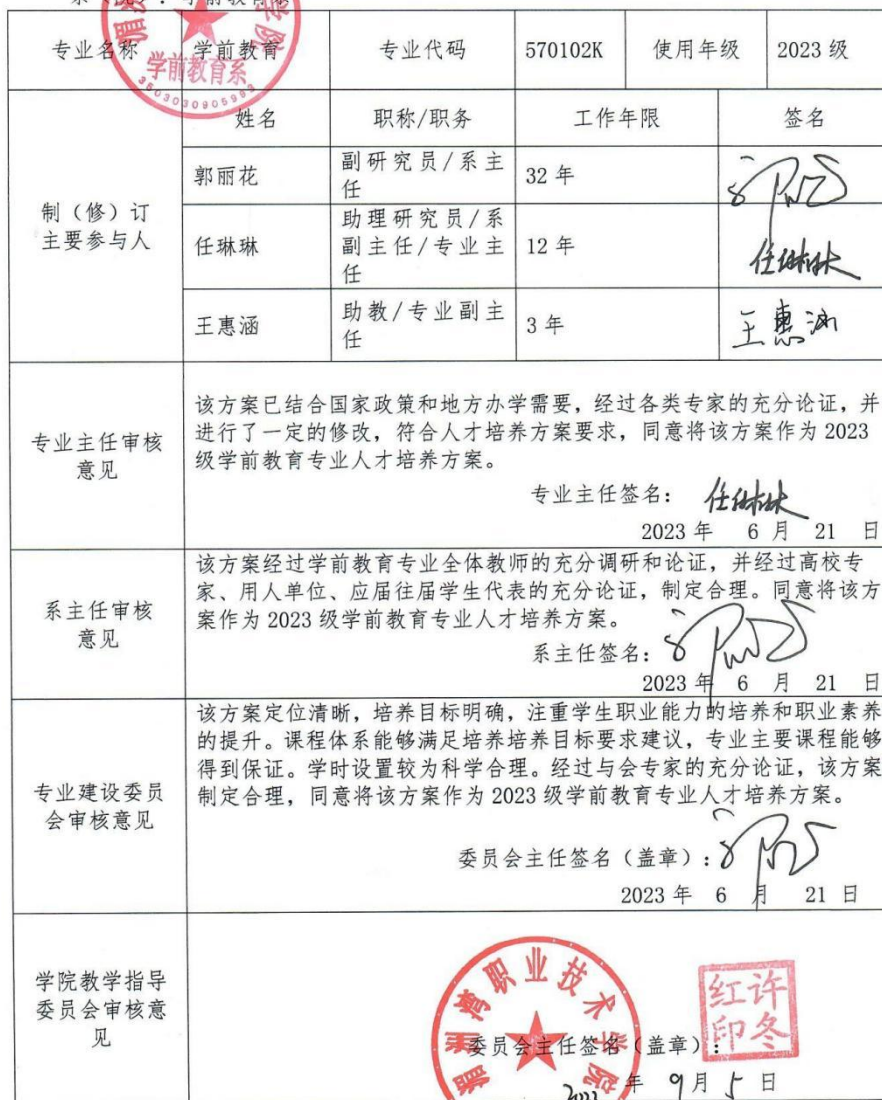 系（院）：学前教育系
专业名称 学前教育 专业代码 570102K 使用年级 2023 级
学前教育系
3503030905993
制（修）订
主要参与人
姓名 职称/职务 工作年限 签名
郭丽花 副研究员/系主
任 32 年
任琳琳 助理研究员/系
副主任/专业主
任 12 年 任琳琳
王惠涵 助教/专业副主
任 3 年 王惠涵
专业主任审核
意见
该方案已结合国家政策和地方办学需要，经过各类专家的充分论证，并
进行了一定的修改，符合人才培养方案要求，同意将该方案作为 2023
级学前教育专业人才培养方案。
专业主任签名： 任琳琳
2023 年 6 月 21 日
系主任审核
意见
该方案经过学前教育专业全体教师的充分调研和论证，并经过高校专
家、用人单位、应届往届学生代表的充分论证，制定合理。同意将该方
案作为 2023 级学前教育专业人才培养方案。
系主任签名：
2023 年 6 月 21 日
专业建设委员
会审核意见
该方案定位清晰，培养目标明确，注重学生职业能力的培养和职业素养
的提升。课程体系能够满足培养培养目标要求建议，专业主要课程能够
得到保证。学时设置较为科学合理。经过与会专家的充分论证，该方案
制定合理，同意将该方案作为 2023 级学前教育专业人才培养方案。
委员会主任签名（盖章）：
2023 年 6 月 21 日
学院教学指导
委员会审核意
见
湄洲湾职业技术学院
许冬红印
委员会主任签名（盖章）：
年 9月 5 日